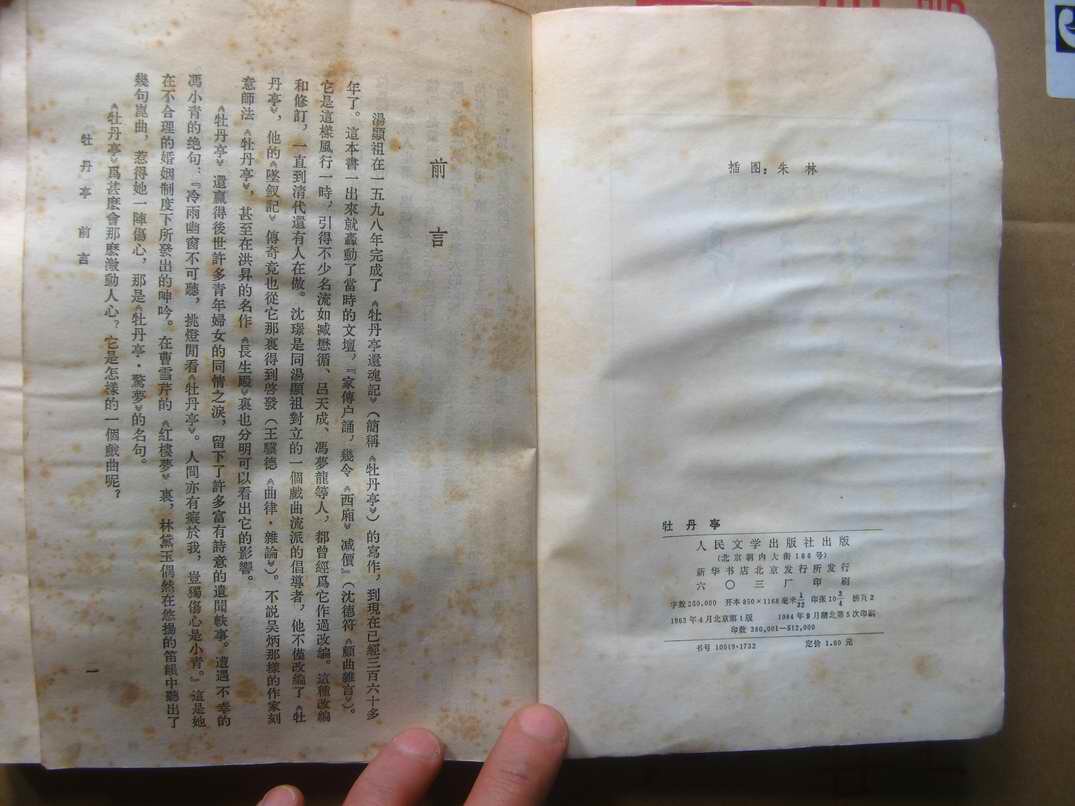 插图：朱林
牡丹亭
人民文学出版社出版
（北京朝内大街166号）
新华书店北京发行所发行
六〇三厂印刷
字数250,000 开本850×1168毫米1/32 印张10 3/4 插页2
1963年4月北京第1版 1984年9月湖北第5次印刷
印数 380,001—512,000
书号 10019·1732 定价 1.60 元
前言
湯顯祖在一五九八年完成了《牡丹亭還魂記》（簡稱《牡丹亭》）的寫作，到現在已經三百六十多
年了。這本書一出來就轟動了當時的文壇，『家傳户誦，幾令《西廂》减價』（沈德符《顧曲雜言》）。
它是這樣風行一時，引得不少名流如臧懋循、吕天成、馮夢龍等人，都曾經爲它作過改編。這種改編
和修訂，一直到清代還有人在做。沈璟是同湯顯祖對立的一個戲曲流派的倡導者，他不僅改編了《牡
丹亭》，他的《墜釵記》傳奇竟也從它那裏得到啓發（王驥德《曲律·雜論》）。不説吴炳那樣的作家刻
意師法《牡丹亭》，甚至在洪昇的名作《長生殿》裏也分明可以看出它的影響。
《牡丹亭》還贏得後世許多青年婦女的同情之淚，留下了許多富有詩意的遺聞軼事。遭遇不幸的
馮小青的绝句：『冷雨幽窗不可聽，挑燈閒看《牡丹亭》。人間亦有癡於我，豈獨傷心是小青。』這是她
在不合理的婚姻制度下所發出的呻吟。在曹雪芹的《紅樓夢》裏，林黛玉偶然在悠揚的笛韻中聽出了
幾句崑曲，惹得她一陣傷心，那是《牡丹亭·驚夢》的名句。
《牡丹亭》爲甚麽會那麽激動人心？它是怎樣的一個戲曲呢？
牡丹亭 前言
一